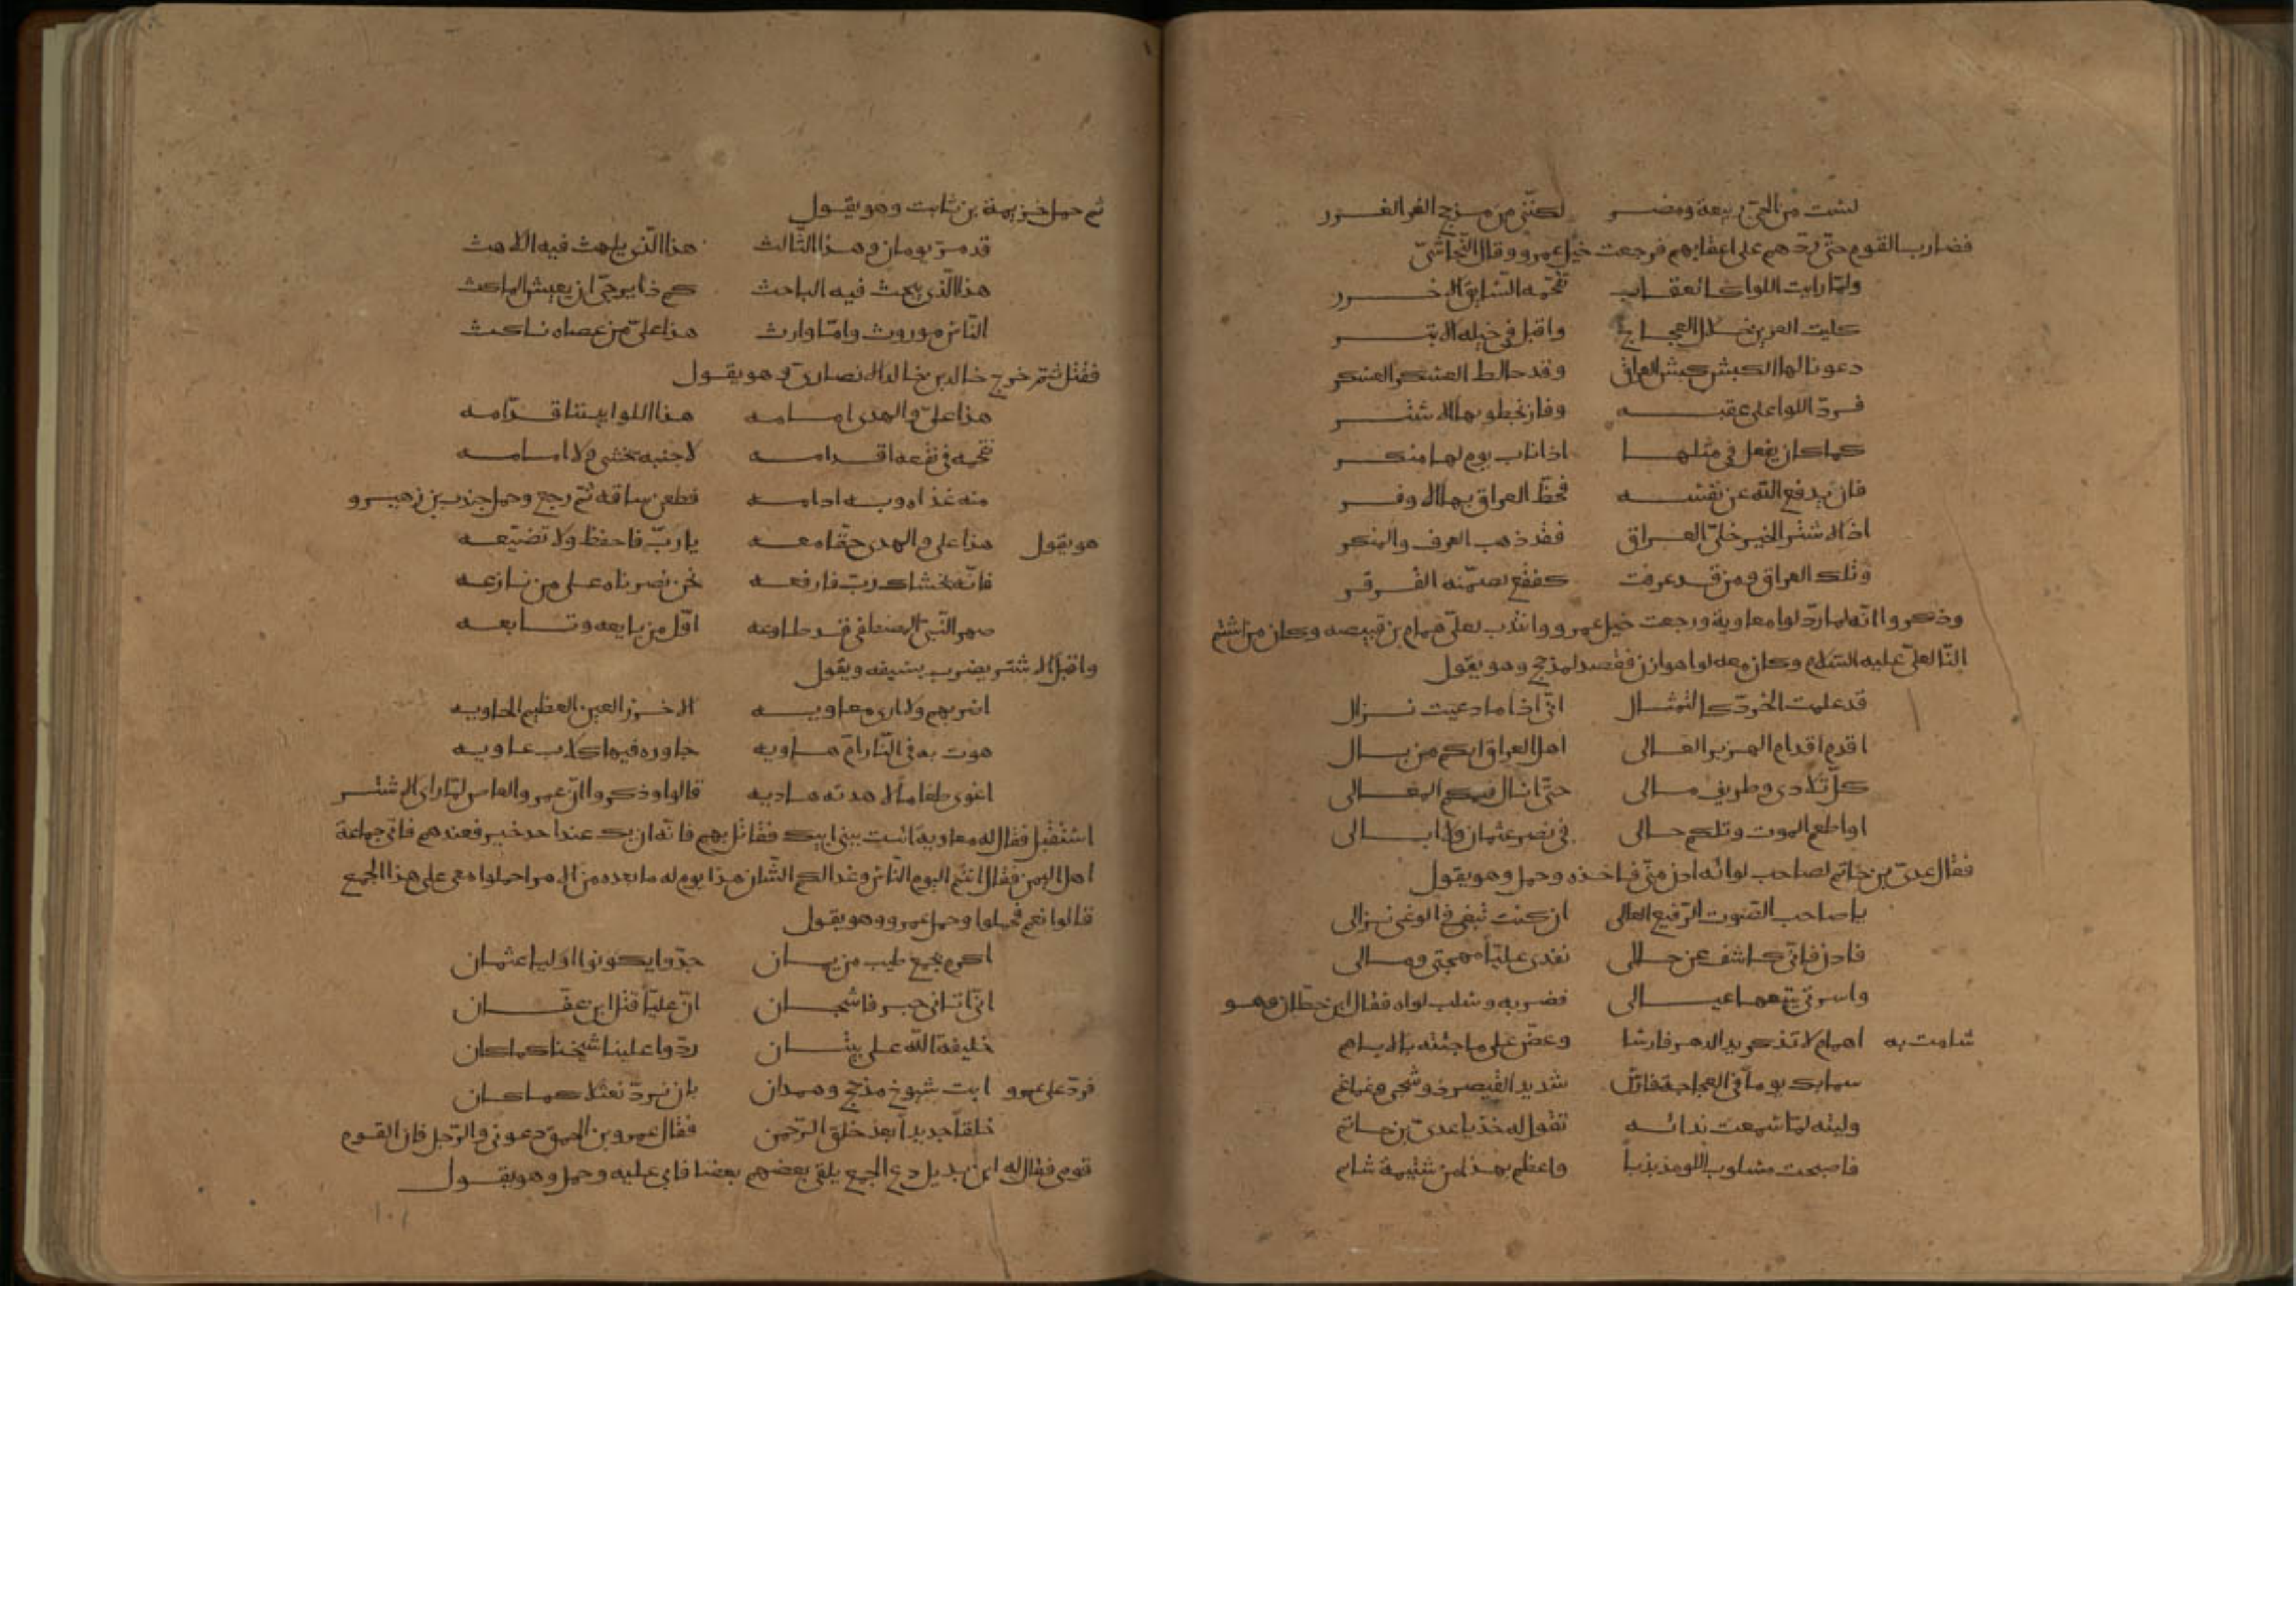 لست من الحي ربيعة ومضر لكنني من مذحج الغر الغرر
فضارب القوم حتى ردهم على اعقابهم فرجعت خيل عمرو وقال النجاشي
ولما رايت اللوا كالعقاب تقحمه الشانئ الاخزر
كليت العرين خلال العجاج واقبل في خيله الابتر
دعونا لها الكبش كبش العراق وقد خالط العسكر العسكر
فرد اللوا على عقبه وفاز بخطوبها الاشتر
كما كان يفعل في مثلها اذا ناب يوم لها منكر
فان يدفع الله عن نفسه فحظ العراق بها الاوفر
اذا الاشتر الخير خلى العراق فقد ذهب العرف والمنكر
وتلك العراق ومن قد عرفت كفقع تضمنه القرقر
وذكروا انه لما رد لوا معاوية ورجعت خيل عمرو وانتدب لعلي همام بن قبيصه وكان من اشتم
النا لعلي عليه السلام وكان معه لوا هوازن فقصد لمذحج وهو يقول
قد علمت الخرد كالتمثال اني اذا ما دعيت نزال
اقدم اقدام الهزبر الغالى اهل العراق انكم من بالى
كل تلادى وطريف مالى حتى انال فيكم المعالى
او اطعم الموت وتلكم حالى في نصر عثمان ولا ابالى
فقال عدي بن حاتم لصاحب لوائه ادن مني فاخذه وحمل وهو يقول
يا صاحب الصوت الرفيع العالى ان كنت تبغي في الوغى نزالى
فادن فاني كاشف عن حالى تفدى عليا مهجتي ومالى
واسرتي يتبعها عيالى فضربه وسلب لواه فقال ابن حطان وهو
شامت به اهمام لا تذكر يد الدهر فارسا وعض على ما جئته بالاباهم
سما بك يوما في العجاجة فاتك شديد القيصر ذو شجى وغماغم
وليته لما سمعت ندائه تقول له خذ يا عدي بن حاتم
فاصبحت مسلوب اللوا مذبذبا واعظم بهذا من شتيمة شاتم
ثم حمل خزيمة بن ثابت وهو يقول
قد مر يومان وهذا الثالث هذا الذي يلهث فيه اللاهث
هذا الذي يبحث فيه الباحث كم ذا يرجى ان يعيش الماكث
الناس موروث واما وارث هذا علي من عصاه ناكث
فقتل ثم خرج خالد بن خالد الانصاري وهو يقول
هذا علي والهدى امامه هذا اللوا بيننا قدامه
نقحمه في نقعه اقدامه لا جبنه نخشى ولا اسامه
منه غذاه وبه ادامه فطعن ساقه ثم رجع وحمل جندب بن زهير و
هو يقول هذا علي والهدى حقا معه يا رب فاحفظ ولا تضيعه
فانه يخشاك رب فارفعه نحن نصرناه على من نازعه
صهر النبي المصطفى قد طاوعه اول من بايعه وتابعه
واقبل الاشتر يضرب بسيفه ويقول
اضربهم ولا ارى معاويه الاخزر العين العظيم الحاويه
هوت به في النار ام هاويه جاوره فيها كلاب عاويه
اغوى طغاما لا هدته هاديه قالوا وذكروا ان عمرو والعاص لما راى الاشتر
استقبل فقال له معاوية ائت ببني ابيك فقاتل بهم فانه ان يك عند احد خير فعندهم فاتى جماعة
اهل اليمن فقال انتم اليوم الناس وغدا لكم الشان هذا يوم له ما بعده من الامر احملوا معي على هذا الجمع
قالوا نعم فحملوا وحمل عمرو وهو يقول
اكرم بجمع طيب من يمان جدوا يكونوا اوليا عثمان
اني اتاني خبر فاشجان ان عليا قتل ابن عفان
خليفة الله على بيان ردوا علينا شيخنا كما كان
فرد على عمرو ابت شيوخ مذحج وهمدان بان نرد نعثلا كما كان
خلقا جديدا بعد خلق الرحمن فقال عمرو بن الحمق دعوني والرجل فان القوم
قومى فقال له ابن بديل دع الجمع يلقى بعضهم بعضا فابى عليه وحمل وهو يقول